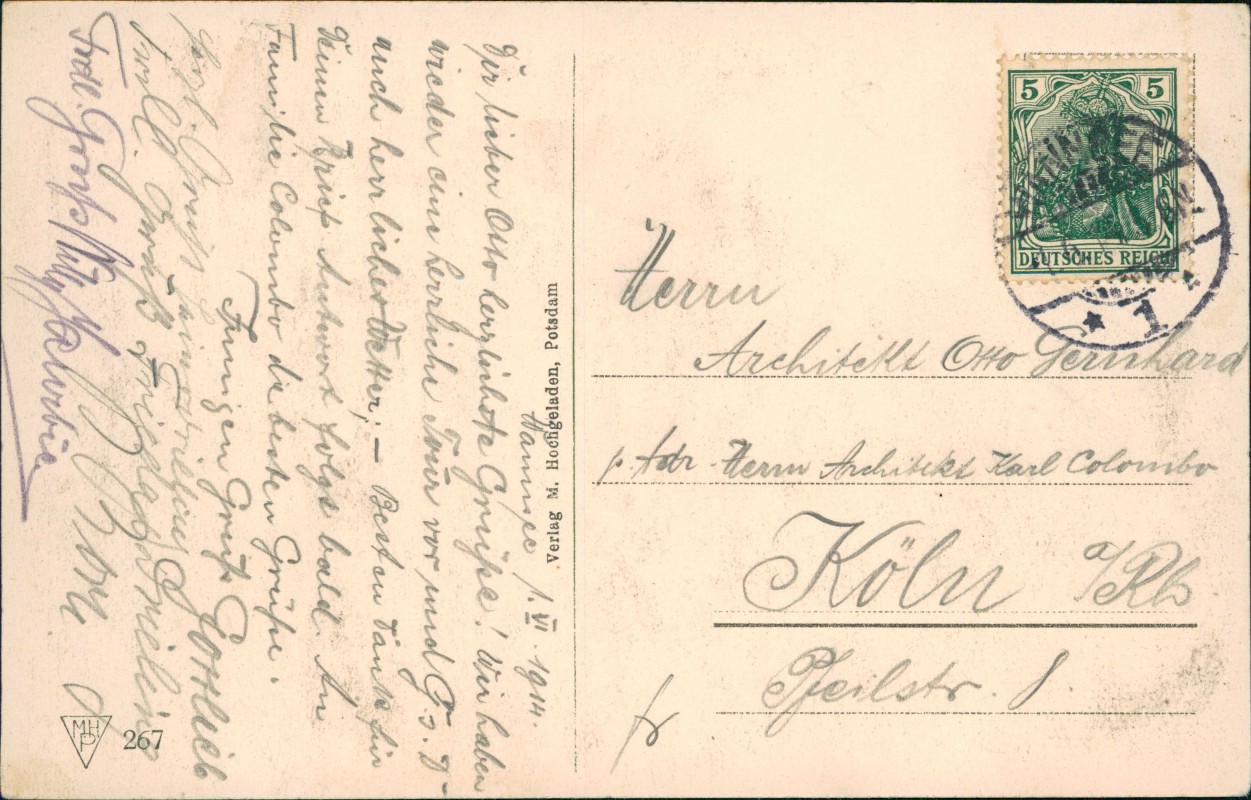 Wannsee 1. VI 1914.
Dir lieber Otto herzlichste Grüße! Wir haben
wieder eine herrliche Tour vor und G. s. D-
auch herrliches Wetter. — Besten Dank für
Deinen Brief Antwort folgt bald. An
Familie Colombo die besten Grüße.
Innigen Gruß
Herzl. Gruß
Gruß
Frdl. Gruß Willy
Verlag M. Hochgeladen, Potsdam
MHP
267
5 5
DEUTSCHES REICH
1
Herrn
Architekt Otto Gernhard
p. Adr. Herrn Architekt Karl Colombo
Köln a/Rh
Pfeilstr. 8
fr